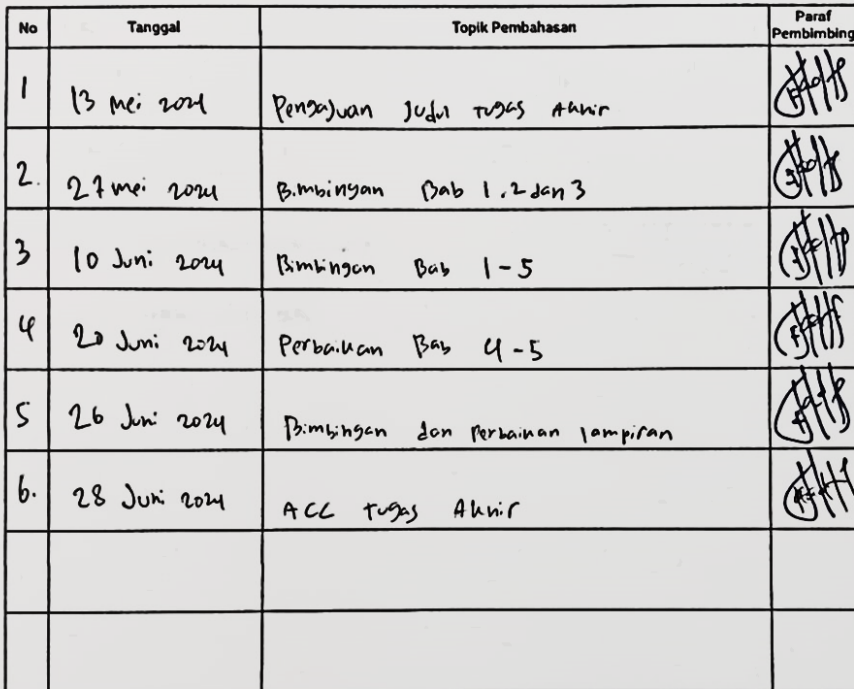 No Tanggal Topik Pembahasan Paraf Pembimbing
1 13 Mei 2024 Pengajuan Judul Tugas Akhir
2. 27 Mei 2024 Bimbingan Bab 1.2 dan 3
3 10 Juni 2024 Bimbingan Bab 1-5
4 20 Juni 2024 Perbaikan Bab 4-5
5 26 Juni 2024 Bimbingan dan Perbaikan lampiran
6. 28 Juni 2024 ACC Tugas Akhir